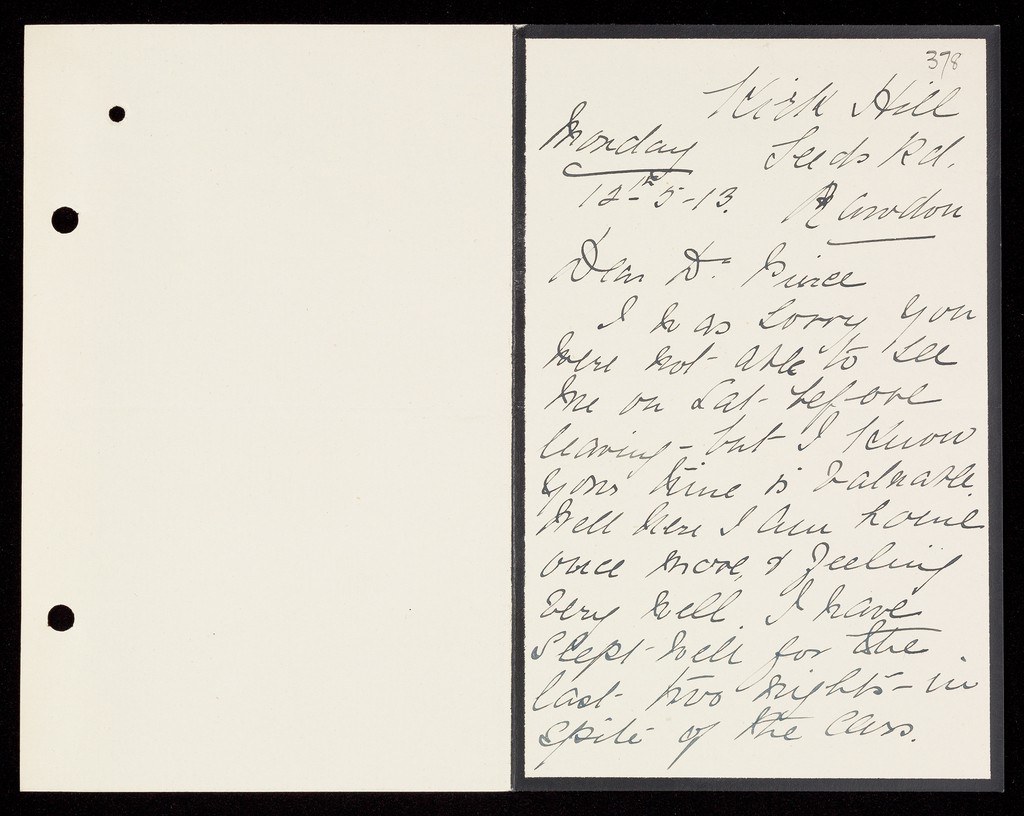 378
Kirk Hill
Monday Leeds Rd.
12th-5-13. Rawdon
Dear Dr. Pierce
I was sorry you
were not able to see
me on Sat- before
leaving - but I know
your time is valuable.
Well here I am home
once more, & feeling
very well. I have
slept well for the
last two nights - in
spite of the cars.